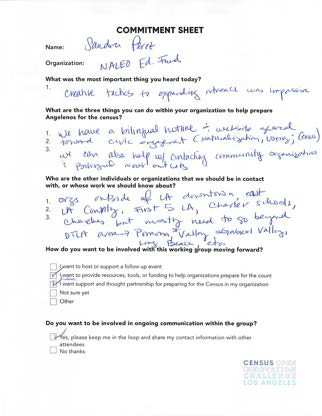 COMMITMENT SHEET
Name: Sandra Perez
Organization: NALEO Ed. Fund
What was the most important thing you heard today?
1. Creative tactics to expanding outreach was impressive
What are the three things you can do within your organization to help prepare
Angelenos for the census?
1. We have a bilingual hotline + website geared
2. toward civic engagement (naturalization, voting, census)
3. we can also help w/ contacting community organizations
+ bilingual media outlets
Who are the other individuals or organizations that we should be in contact
with, or whose work we should know about?
1. orgs outside of LA downtown, east
2. LA County, First 5 LA, Charter schools,
3. churches but mostly need to go beyond
DTLA area → Pomona, Valley, Antelope Valley,
Long Beach, etc.
How do you want to be involved with this working group moving forward?
I want to host or support a follow up event
I want to provide resources, tools, or funding to help organizations prepare for the count
I want support and thought partnership for preparing for the Census in my organization
Not sure yet
Other
Do you want to be involved in ongoing communication within the group?
Yes, please keep me in the loop and share my contact information with other
attendees
No thanks.
CENSUS OPEN
INNOVATION
CHALLENGE
LOS ANGELES